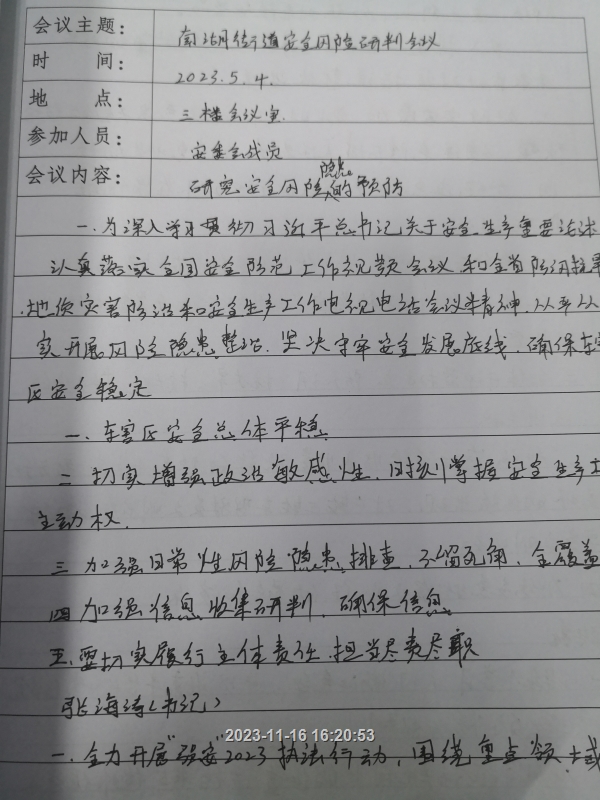 会议主题： 南湖街道安全风险研判会议
时 间： 2023.5.4.
地 点： 三楼会议室
参加人员： 安委会成员
会议内容： 研究安全风险隐患的预防
一.为深入学习贯彻习近平总书记关于安全生产重要论述
认真落实全国安全防范工作视频会议和全省防汛抗旱
地质灾害防治和安全生产工作电视电话会议精神，从严从
实开展风险隐患整治.坚决守牢安全发展底线，确保东
区安全稳定
一、东宝区安全总体平稳
二 切实增强政治敏感性，时刻掌握安全生产工
主动权.
三 加强日常性风险隐患排查，不留死角，全覆盖
四 加强信息收集研判，确保信息
五.要切实履行主体责任.担当尽责尽职
张海涛（书记）
2023-11-16 16:20:53
一、全力开展"强安"2023执法行动，围绕重点领土或